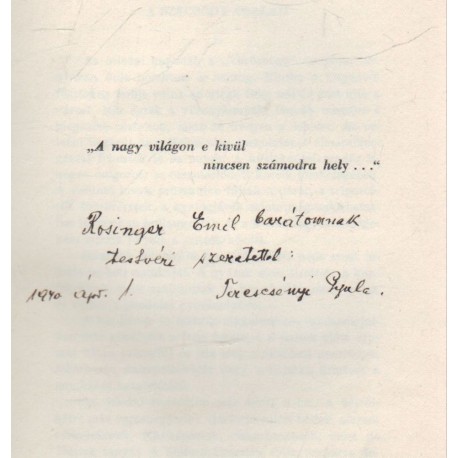 „A nagy világon e kivül
nincsen számodra hely . . .“
Rosinger Emil barátomnak
testvéri szeretettel:
1940 ápr. 1. Terescsényi Gyula.